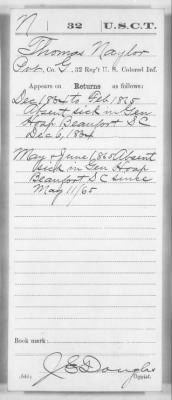 N | 32 | U.S.C.T.
Thomas Naylor
Pvt, Co. G, 32 Reg't U. S. Colored Inf.
Appears on Returns as follows:
Dec 1864 to Feb. 1865
Absent sick in Gen
Hosp Beaufort S C
Dec 6, 1864
May & June 1, 1865 Absent
sick in Gen Hosp
Beaufort S C since
May 11/65
Book mark:
(546) J E Douglas
Copyist.